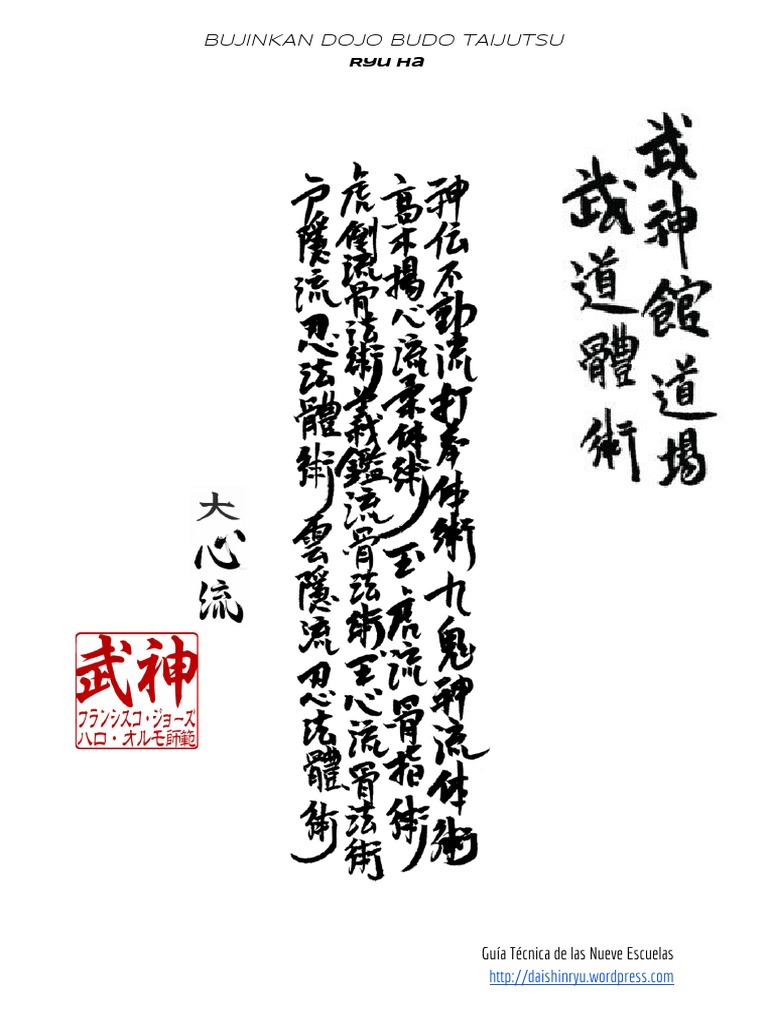 BUJINKAN DOJO BUDO TAIJUTSU
Ryu Ha
武神館道場
武道體術
神伝不動流打拳体術九鬼神流体術
高木揚心流柔体術玉虎流骨指術
虎倒流骨法術義鑑流骨法術玉心流骨法術
戸隱流忍法體術雲隱流忍法體術
大心流
武神
フランシスコ・ジョーズ
ハロ・オルモ師範
Guía Técnica de las Nueve Escuelas
http://daishinryu.wordpress.com